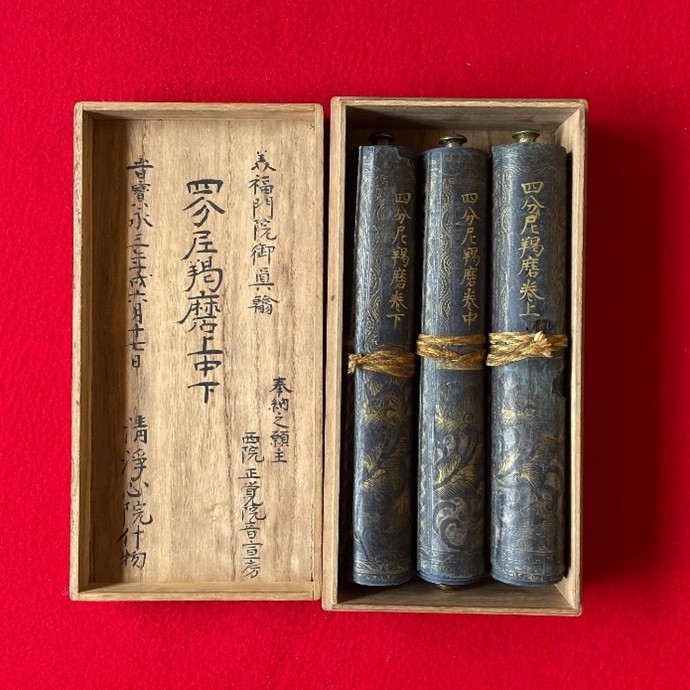 美福門院御眞翰
奉納之願主
西院 正覚院音宣房
四分尼羯磨上中下
旹寳永三年戌六月十七日
清淨心院什物
四分尼羯磨卷上
四分尼羯磨卷中
四分尼羯磨卷下